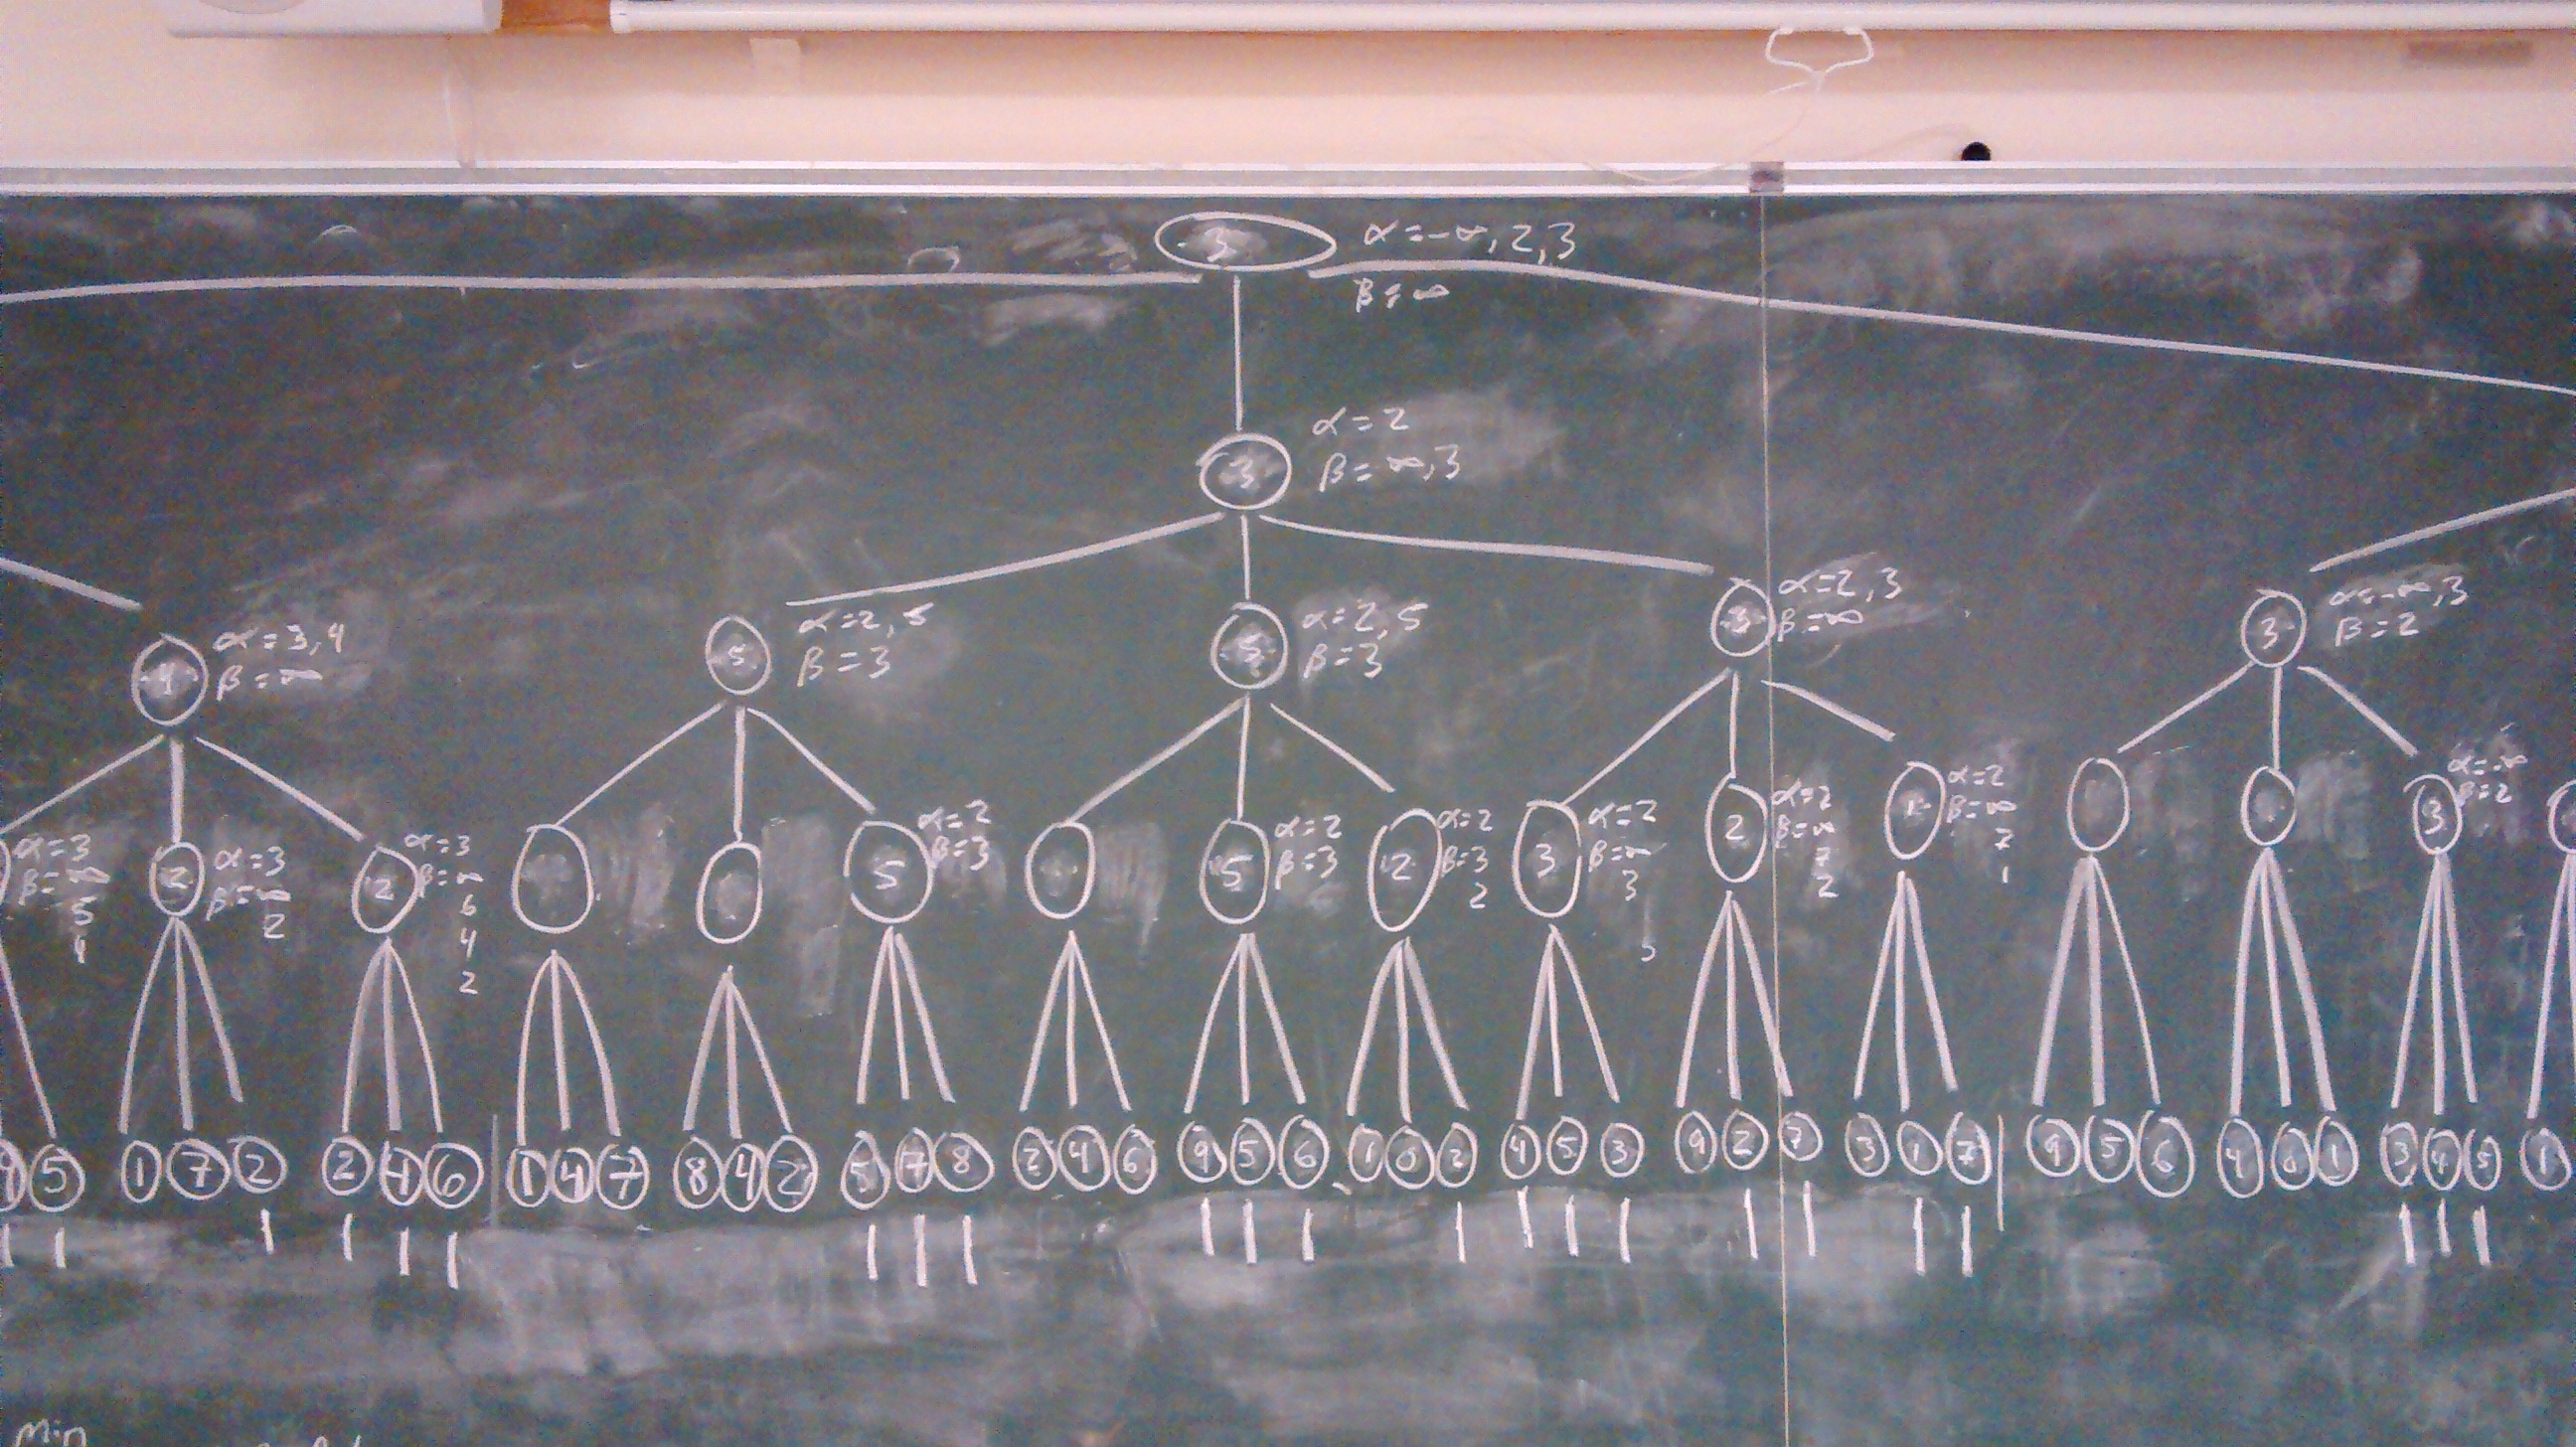 3 α=-∞,2,3
β=∞
α=2
3 β=∞,3
α=3,4
4 β=∞
α=2,5
5 β=3
α=2,5
5 β=3
α=2,3
3 β=∞
α=-∞,3
3 β=2
α=3
β=∞
5
4
2 α=3
β=∞
2
2 α=3
β=∞
6
4
2
5 α=2
β=3
5 α=2
β=3
2 α=2
β=3
2
3 α=2
β=∞
3
2 α=2
β=∞
7
2
1 α=2
β=∞
7
1
3 α=-∞
β=2
5 1 7 2 2 4 6 1 4 7 8 4 2 5 7 8 2 4 6 9 5 6 1 0 2 4 5 3 9 2 7 3 1 7 9 5 6 4 0 1 3 4 5 1
Min